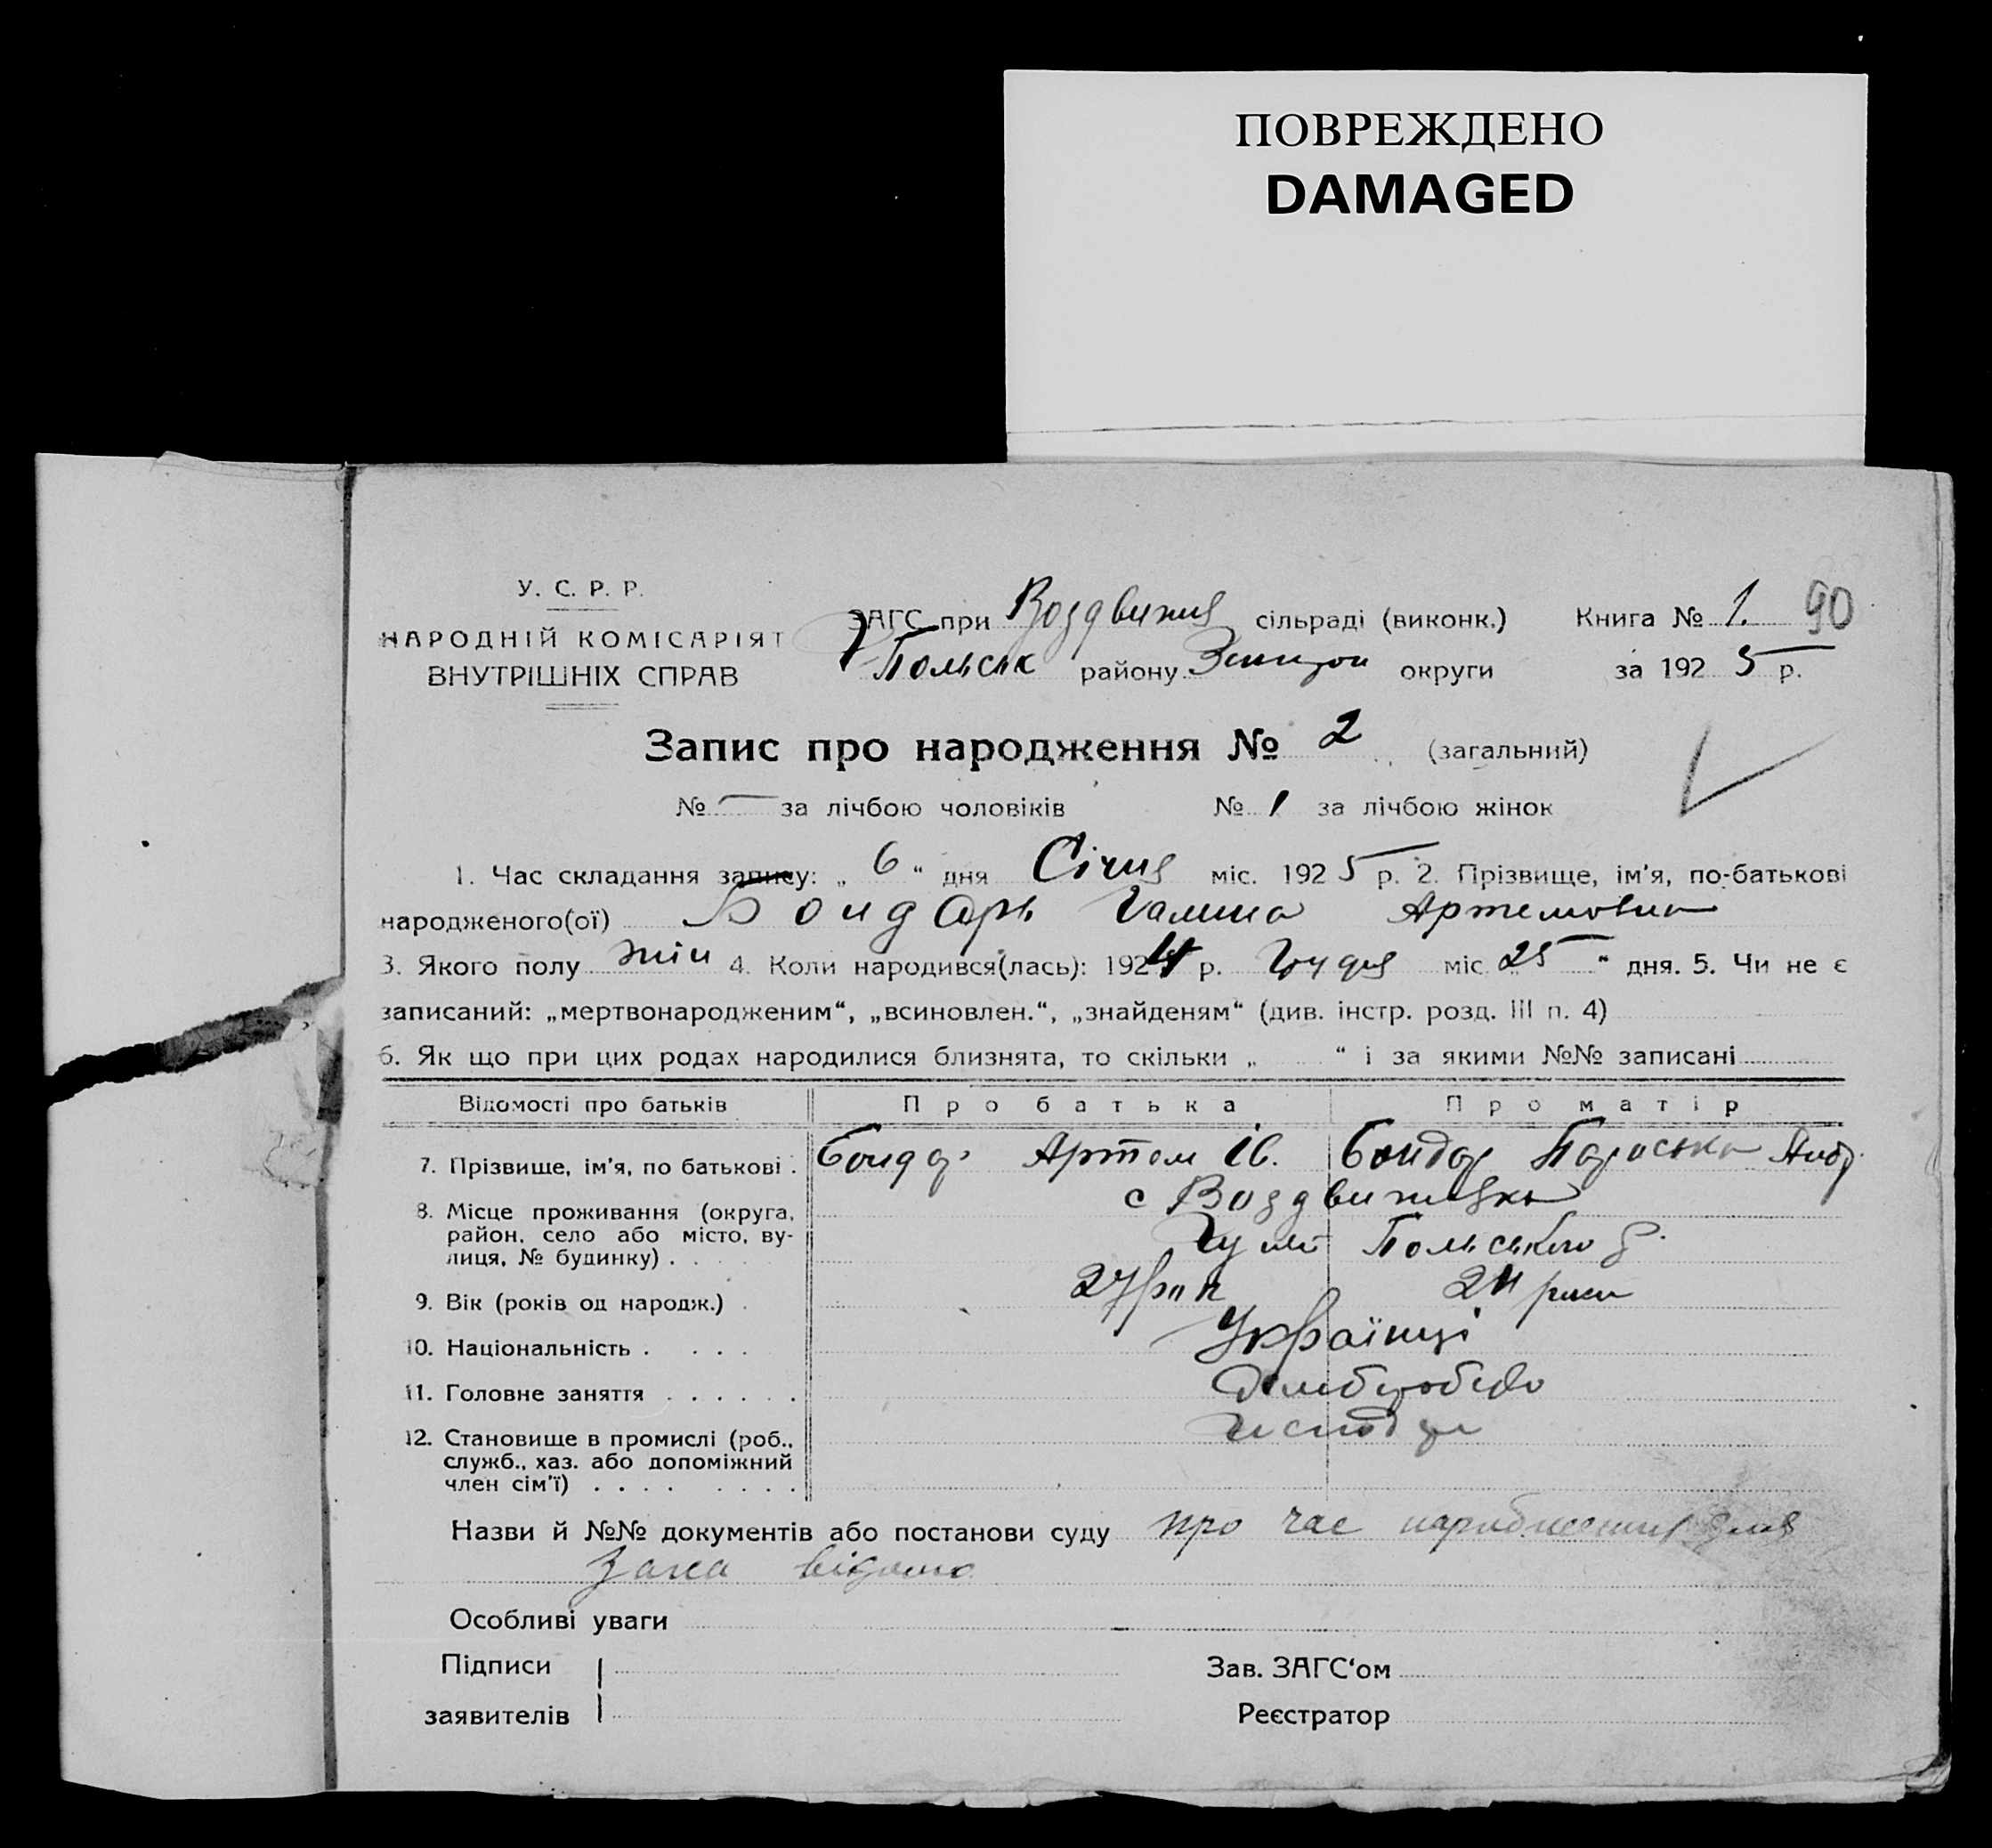 ПОВРЕЖДЕНО
DAMAGED
У. С. Р. Р.
НАРОДНІЙ КОМІСАРІЯТ
ВНУТРІШНІХ СПРАВ
ЗАГС при Воздвижен сільраді (виконк.) Книга № 1. 90
Польськ району округи за 1925 р.
Запис про народження № 2 (загальний)
№ — за лічбою чоловіків № 1 за лічбою жінок
1. Час складання запису: „ 6 “ дня Січня міс. 1925 р. 2. Прізвище, ім'я, по-батькові
народженого(ої) Бондарь Галина Артемовна
3. Якого полу жін 4. Коли народився(лась): 1924 р. Грудня міс 25 “ дня. 5. Чи не є
записаний: „мертвонародженим“, „всиновлен.“, „знайденям“ (див. інстр. розд. III п. 4)
6. Як що при цих родах народилися близнята, то скільки „ “ і за якими №№ записані
Відомості про батьків Про батька Про матір
7. Прізвище, ім'я, по батькові . Бондар Артем Ів. Бондар Параська Андр.
8. Місце проживання (округа, с Воздвиженська
район, село або місто, ву-
лиця, № будинку) . . . . Польського р.
9. Вік (років од народж.) . 27 рок 24 роки
10. Національність . . . . Українці
11. Головне заняття . . . . . .
12. Становище в промислі (роб.,
служб., хаз. або допоміжний
член сім'ї) . . . . . . . .
Назви й №№ документів або постанови суду про час народження
відомо
Особливі уваги
Підписи Зав. ЗАГС‘ом
заявителів Реєстратор